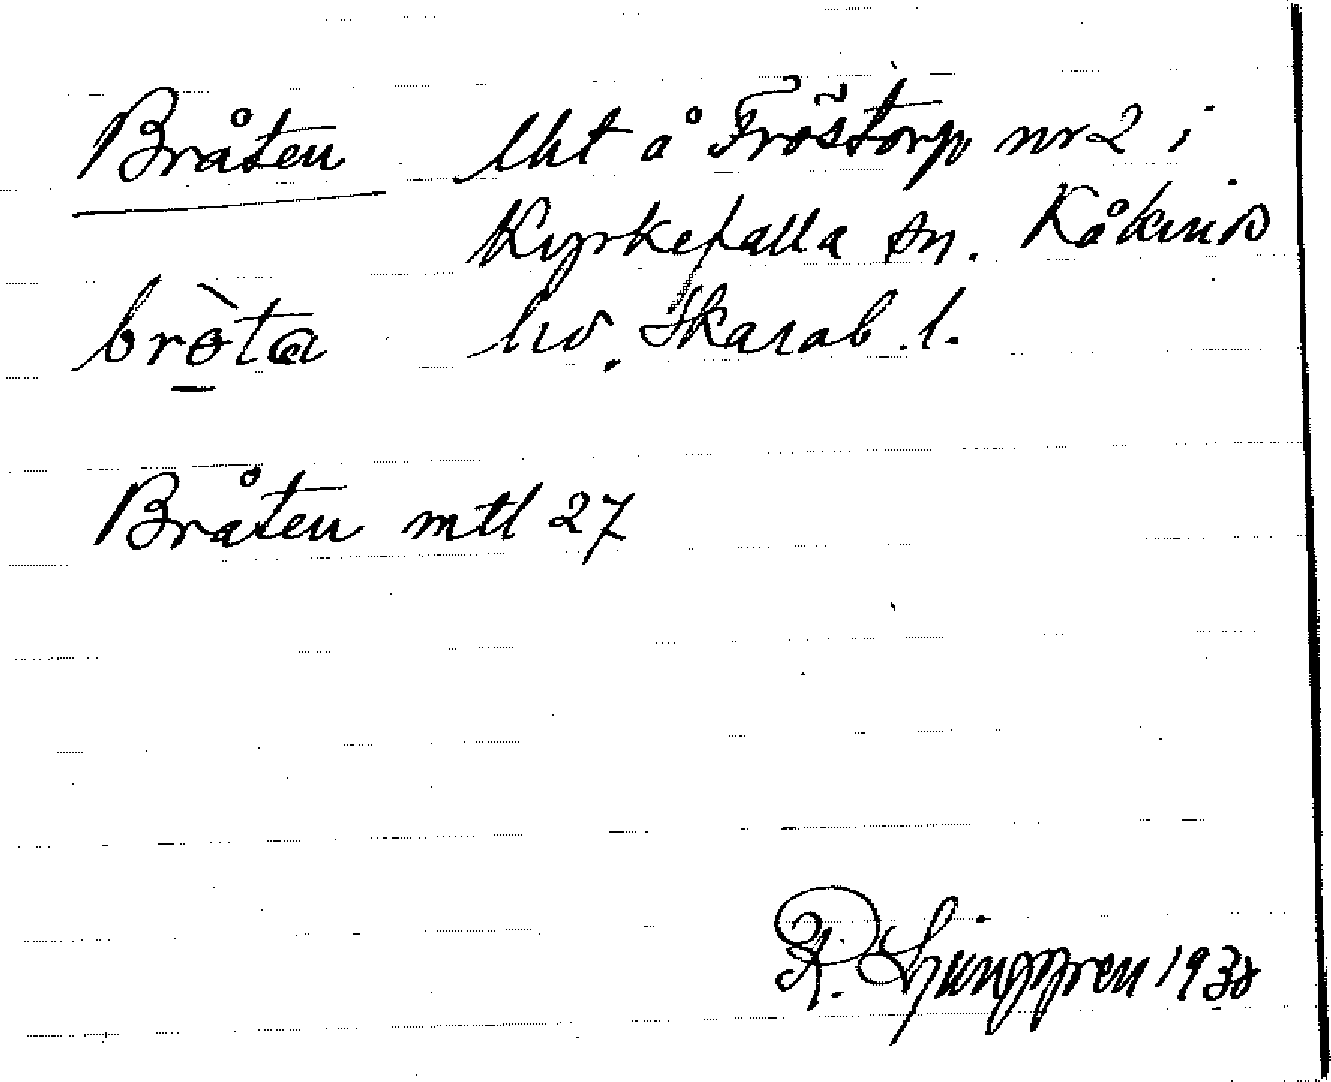 Bråten lht å Fröstorp nr 2 i
Kyrkefalla sn. Kåkinds
bro̠̍̀ta hd. Skarab. l.
Bråten mtl 27
R. Ljunggren 1938